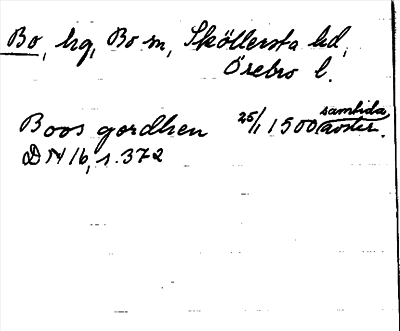 Bo, hg, Bo sn, Sköllersta hd,
Örebro l.
samtida
Boos gordhen 25/1 1500 avskr.
DN 16, s. 372